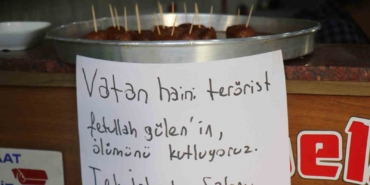 Vatan haini terörist
fetullah gülen'in,
ölümünü kutluyoruz.
AAT
el